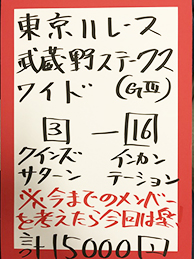 東京11レース
武蔵野ステークス
ワイド (GⅢ)
3 — 16
クインズ インカン
サターン テーション
※今までのメンバー
を考えたら今回は楽
計15000円